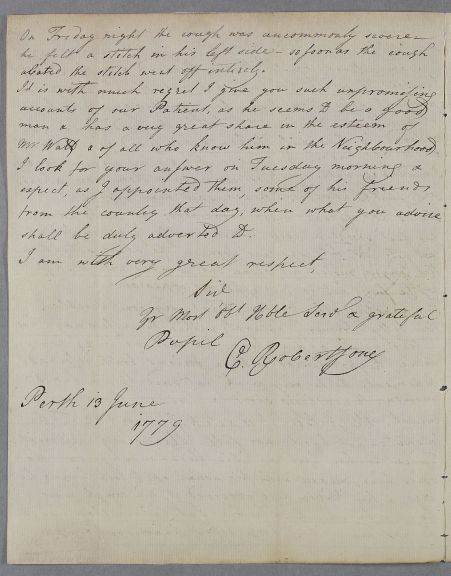 On Friday night the cough was uncommonly severe –
he felt a stitch in his left side – so soon as the cough
abated the stitch went off intirely.
It is with much regret I give you such unpromising
accounts of our Patient, as he seems to be a good
man & has a very great share in the esteem of
Mr Watt & of all who know him in the Neighbourhood
I look for your answer on Tuesday morning &
expect, as I appointed them, some of his friends
from the country that day, when what you advise
shall be duly adverted to.
I am with very great respect,
Sir
Yr Most Obt Hble Servt & grateful
Pupil
C. Robertson
Perth 13 June
1779